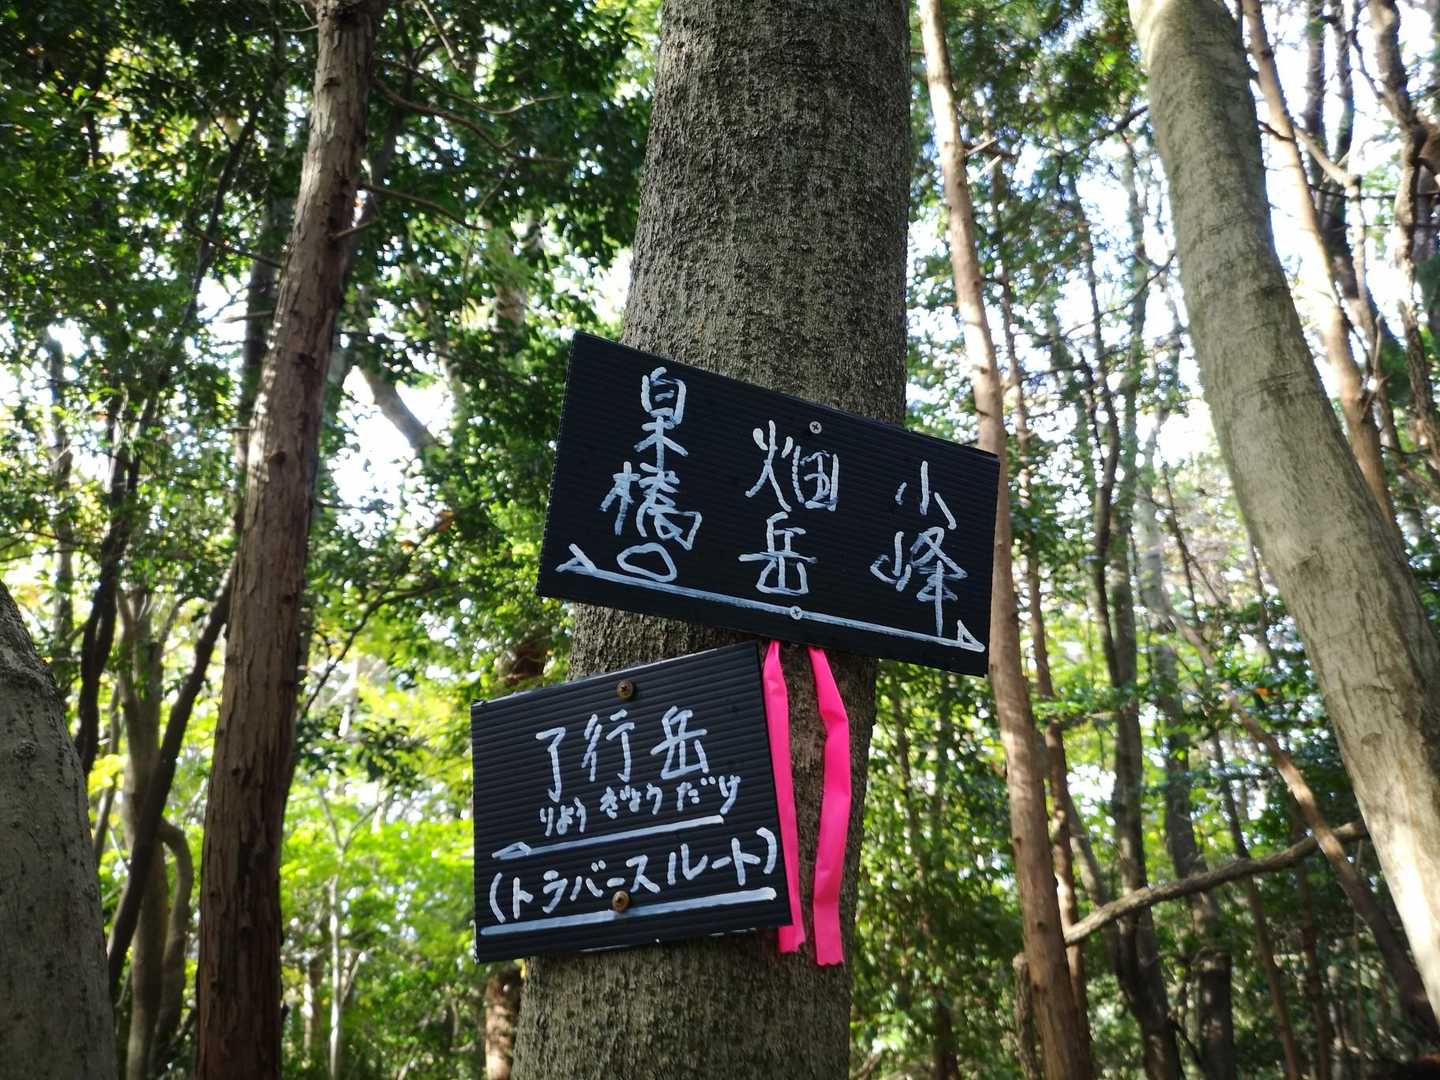 小峰
畑岳
泉橋口
了行岳
りょうぎょうだけ
(トラバースルート)